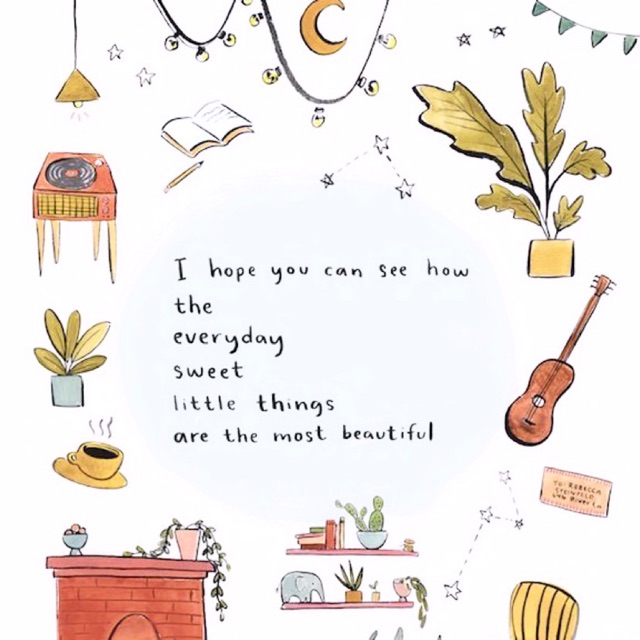 I hope you can see how
the
everyday
sweet
little things
are the most beautiful
TO: REBECCA